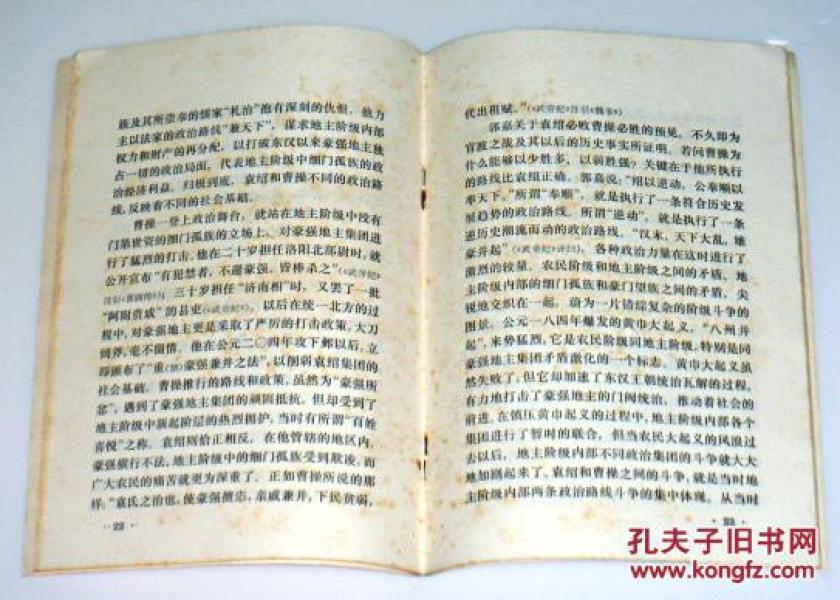 族及其所崇奉的儒家“礼治”抱有深刻的仇恨，他力
主以法家的政治路线“兼天下”，谋求地主阶级内部
权力和财产的再分配，以打破东汉以来豪强地主独
占一切的政治局面，代表地主阶级中细门孤族的政
治经济利益。归根到底，袁绍和曹操不同的政治路
线，反映着不同的社会基础。
曹操一登上政治舞台，就站在地主阶级中没有
门第世资的细门孤族的立场上，对豪强地主集团进
行了猛烈的打击，他在二十岁担任洛阳北部尉时，就
公开宣布“有犯禁者，不避豪强，皆棒杀之”（《武帝纪》
注引《曹瞒传》）；三十岁担任“济南相”时，又罢了一批
“阿附贵戚”的县吏（《武帝纪》）。以后在统一北方的过
程中，对豪强地主更是采取了严厉的打击政策，大刀
阔斧，毫不留情。他在公元二〇四年攻下邺以后，立
即颁布了“重（禁）豪强兼并之法”，以削弱袁绍集团的
社会基础。曹操推行的路线和政策，虽然为“豪强所
忿”，遇到了豪强地主集团的顽固抵抗，但却受到了
地主阶级中新起阶层的热烈拥护，当时有所谓“百姓
喜悦”之称。袁绍则恰正相反，在他管辖的地区内，
豪强横行不法，地主阶级中的细门孤族受到欺凌，而
广大农民的痛苦就更为深重了。正如曹操所说的那
样：“袁氏之治也，使豪强擅恣，亲戚兼并，下民贫弱，
· 22 ·
代出租赋。”（《武帝纪》注引《魏书》）
郭嘉关于袁绍必败曹操必胜的预见，不久即为
官渡之战及其以后的历史事实所证明。若问曹操为
什么能够以少胜多，以弱胜强？关键在于他所执行
的路线比袁绍正确。郭嘉说：“绍以逆动，公奉顺以
率天下。”所谓“奉顺”，就是执行了一条符合历史发
展趋势的政治路线。所谓“逆动”，就是执行了一条
逆历史潮流而动的政治路线。“汉末，天下大乱，雄
豪并起”（《武帝纪》评曰），各种政治力量在这时进行了
激烈的较量。农民阶级和地主阶级之间的矛盾，地
主阶级内部的细门孤族和豪门望族之间的矛盾，尖
锐地交织在一起，蔚为一片错综复杂的阶级斗争的
图景。公元一八四年爆发的黄巾大起义，“八州并
起”，来势猛烈，它是农民阶级同地主阶级，特别是同
豪强地主集团矛盾激化的一个标志。黄巾大起义虽
然失败了，但它却加速了东汉王朝统治瓦解的过程，
有力地打击了豪强地主的门阀统治，推动着社会的
前进。在镇压黄巾起义的过程中，地主阶级内部各个
集团进行了暂时的联合，但当农民大起义的风浪过
去以后，地主阶级内部不同政治集团的斗争就大大
地加剧起来了。袁绍和曹操之间的斗争，就是当时地
主阶级内部两条政治路线斗争的集中体现。从当时
· 23 ·
孔夫子旧书网
www.kongfz.com